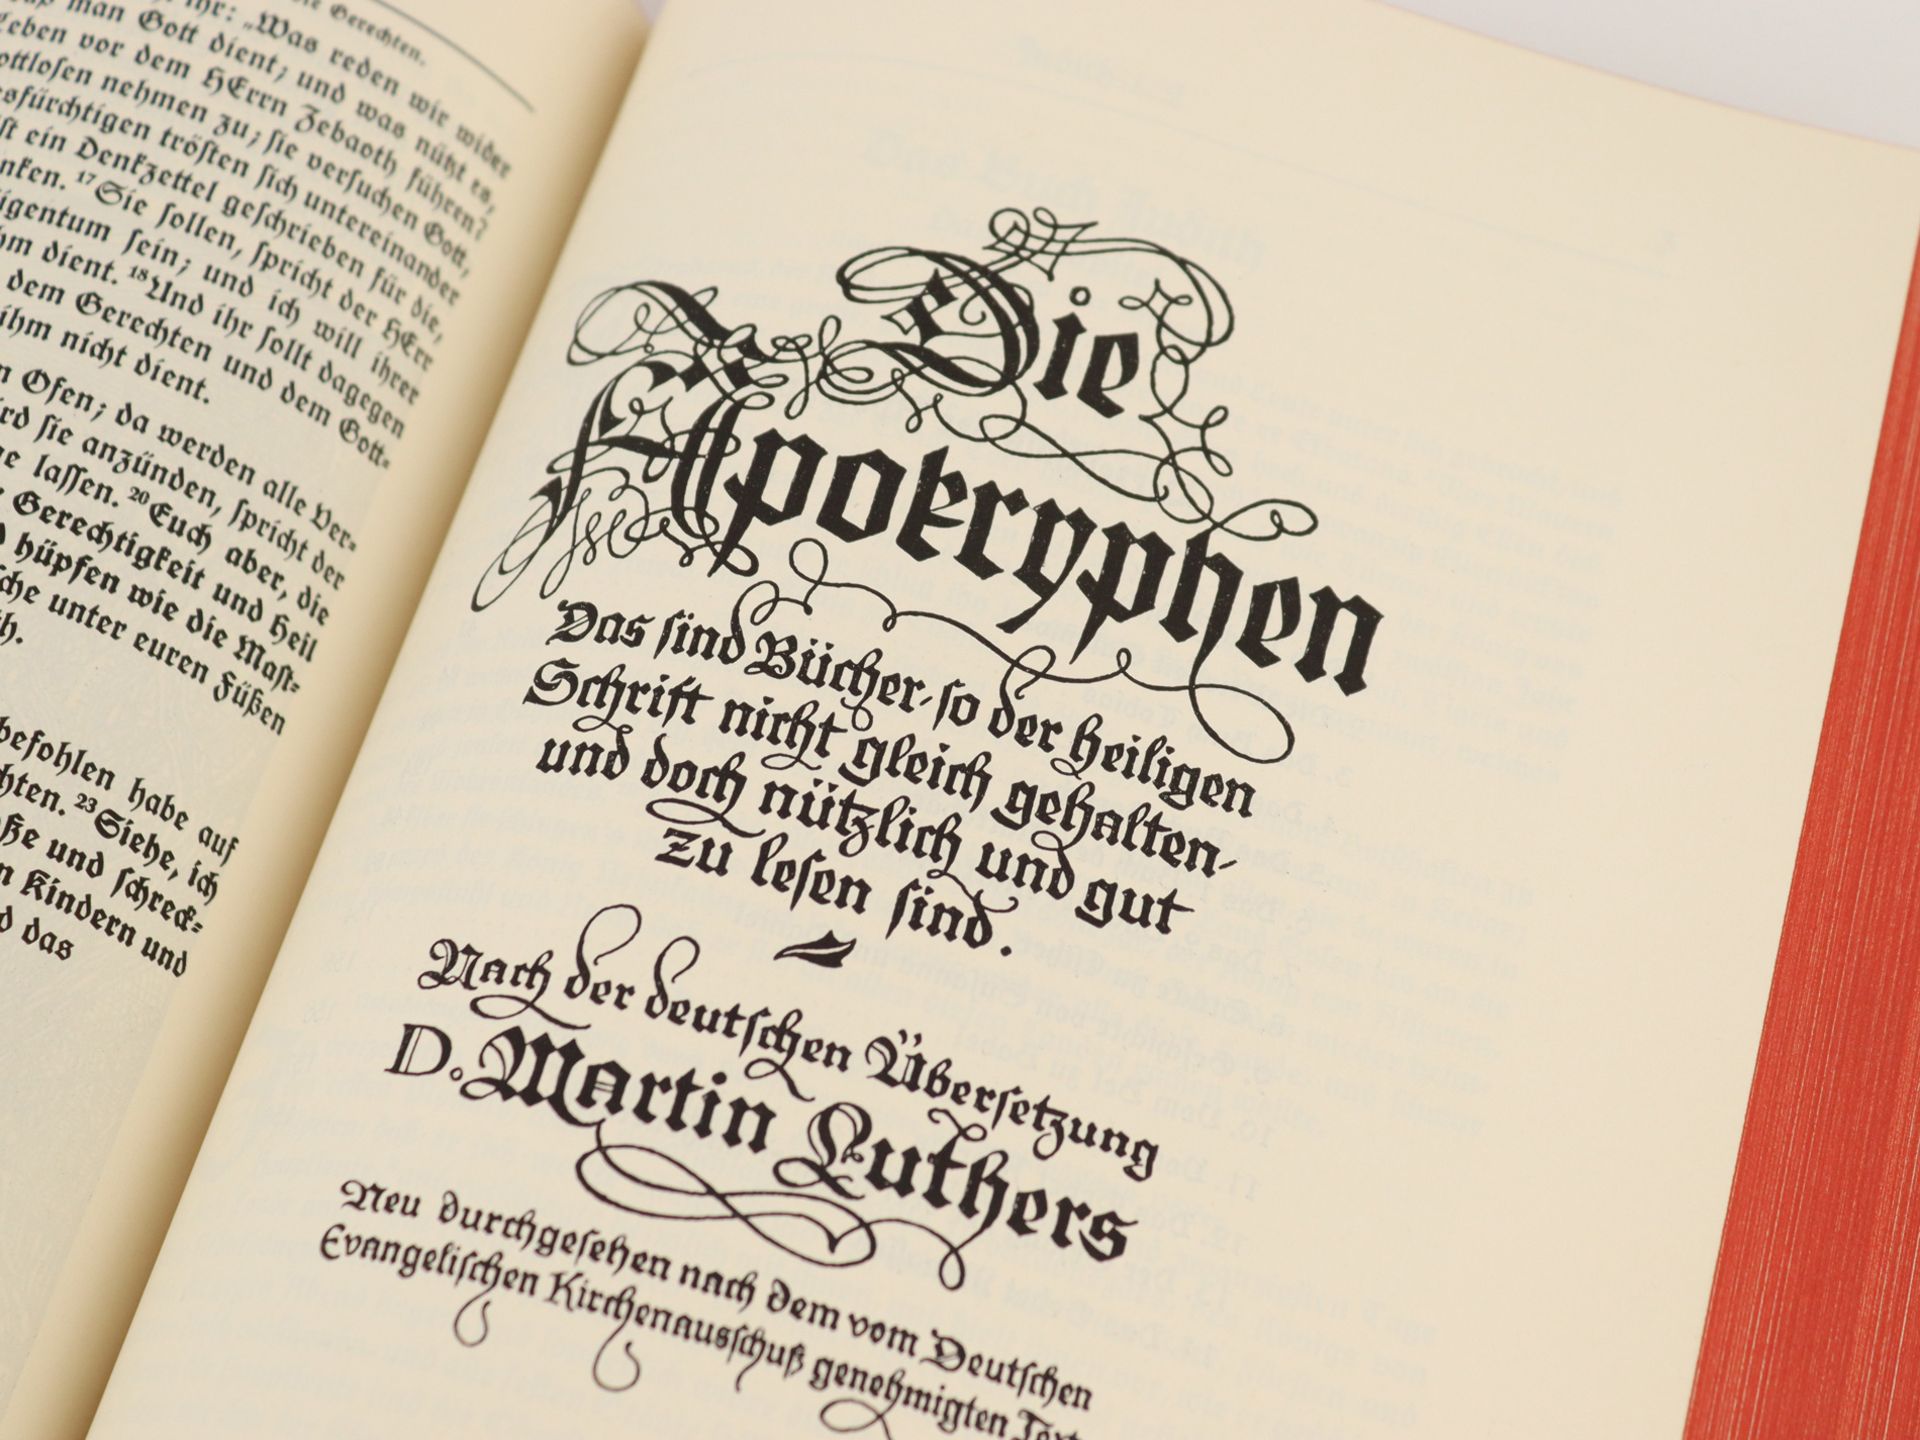 die Gerechten.
ihr: „Was reden wir wider
man Gott dient; und was nützt es,
Leben vor dem HErrn Zebaoth führen?
nehmen zu; sie versuchen Gott,
trösten sich untereinander
ist ein Denkzettel geschrieben für die,
¹⁷Sie sollen, spricht der HErr
sein; und ich will ihrer
dient. ¹⁸Und ihr sollt dagegen
dem Gerechten und dem Gott-
ihm nicht dient.
Ofen; da werden alle Ver-
sie anzünden, spricht der
lassen. ²⁰Euch aber, die
Gerechtigkeit und Heil
hüpfen wie die Mast-
unter euren Füßen
befohlen habe auf
²³Siehe, ich
und schreck-
Kindern und
das
Die
Apokryphen
Das sind Bücher, so der heiligen
Schrift nicht gleich gehalten,
und doch nützlich und gut
zu lesen sind.
Nach der deutschen Übersetzung
D. Martin Luthers
Neu durchgesehen nach dem vom Deutschen
Evangelischen Kirchenausschuß genehmigten Text